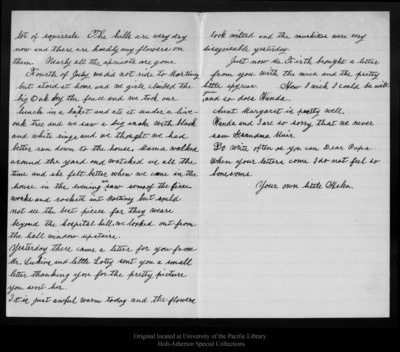 lot of squirrels. The hills are very dry
now and there are hardly any flowers on
them. Nearly all the apricots are gone.
Fourth of July we did not ride to Martinez
but staid at home and we girls climbed the
big Oak by the fence and we took our
lunch in a basket and ate it under a live-
oak tree and we saw a big snake with black
and white rings and we thought we had
better run down to the house. Mama walked
around the yard and watched us all the
time and she felt better when we came in the
house. in the evening we saw some of the fire
works and rockets in Martinez but could
not see the best pieces for they were
beyond the hospital hill. we looked out from
the hall window upstairs.
Yesterday there came a letter for you from
Mr. Lukins and little Lotty sent you a small
letter thanking you for the pretty picture
you sent her.
It is just awful warm today and the flowers
look wilted and the mosquitoes were very
disagreeable yesterday.
Just now Mr. brought a letter
from you with the mica and the pretty
little spruce. How I wish I could be with
and so does Wanda.
Aunt Margaret is pretty well.
Wanda and I are so sorry that we never
saw Grandma Muir.
Do write often as you can Dear Papa
when your letters come I do not feel so
lonesome.
Your own little Helen.
Original located at University of the Pacific Library
Holt-Atherton Special Collections